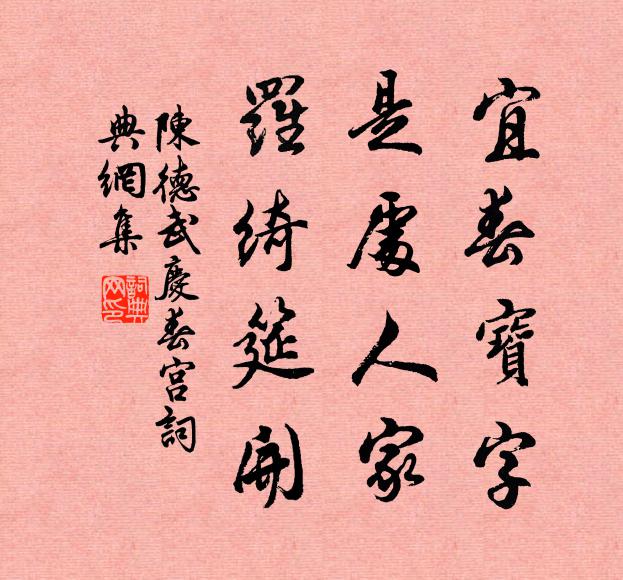 宜春寶字
是處人家
羅綺筵開
陳德武慶春宮詞
典網集
詞典
网印